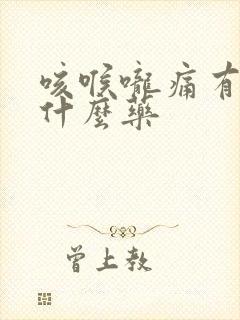 咳喉嚨痛有
什麼藥
曾上教